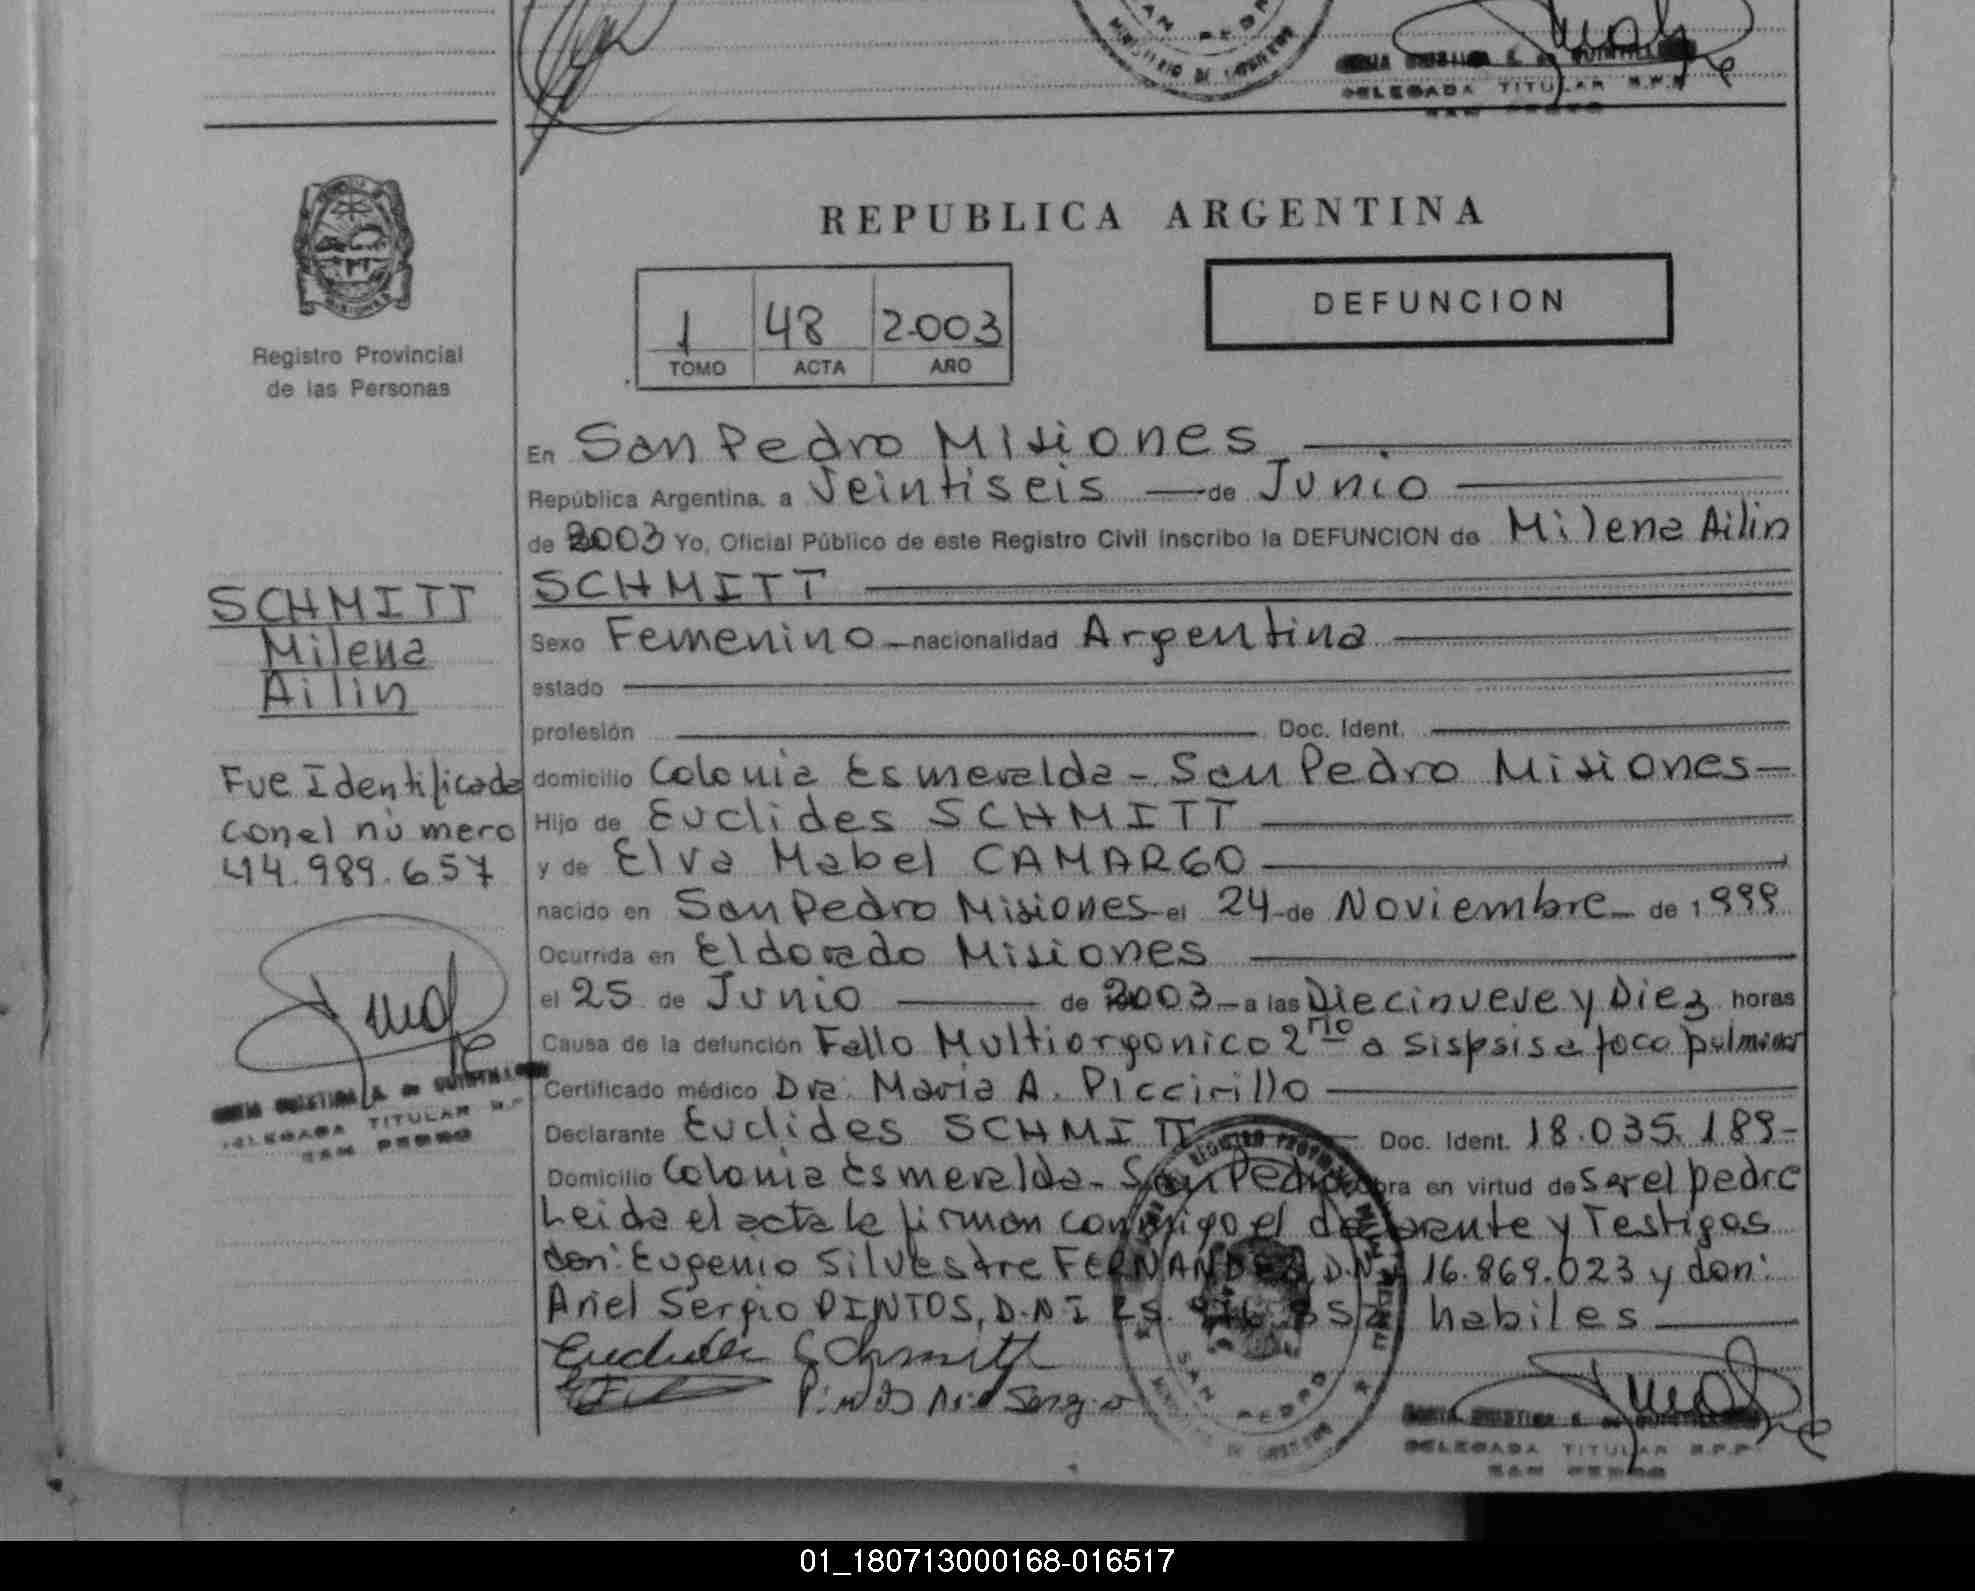 SAN PEDRO
MINISTERIO DE GOBIERNO
DELEGADA TITULAR R.P.P
SAN PEDRO
REPUBLICA ARGENTINA
DEFUNCION
1 48 2.003
TOMO ACTA AÑO
MISIONES
Registro Provincial
de las Personas
En San Pedro Misiones
República Argentina. a Veintiseis de Junio
de 2003 Yo, Oficial Público de este Registro Civil inscribo la DEFUNCION de Milena Ailin
SCHMITT
SCHMITT
Milena
Ailin
Sexo Femenino nacionalidad Argentina
estado
profesión Doc. Ident.
Fue Identificada
con el número
44.989.657
domicilio Colonia Esmeralda - San Pedro Misiones
Hijo de Euclides SCHMITT
y de Elva Mabel CAMARGO
nacido en San Pedro Misiones el 24 de Noviembre de 1999
Ocurrida en Eldorado Misiones
el 25 de Junio de 2003 a las Diecinueve y Diez horas
Causa de la defunción Fallo Multiorgonico 2rio a sispsis a foco pulmonar
Certificado médico Dra. Maria A. Piccirillo
DELEGADA TITULAR R.P
SAN PEDRO
Declarante Euclides SCHMITT Doc. Ident. 18.035.189-
Domicilio Colonia Esmeralda - San Pedro obra en virtud de ser el padre
Leida el acta la firman conmigo el declarante y Testigos
don: Eugenio Silvestre FERNANDEZ, D.N.I 16.869.023 y don:
Ariel Sergio PINTOS, D.N.I habiles
Euclides Schmitt
Pintos Ariel Sergio
SAN PEDRO
DELEGADA TITULAR R.P.P
SAN PEDRO
01_180713000168-016517